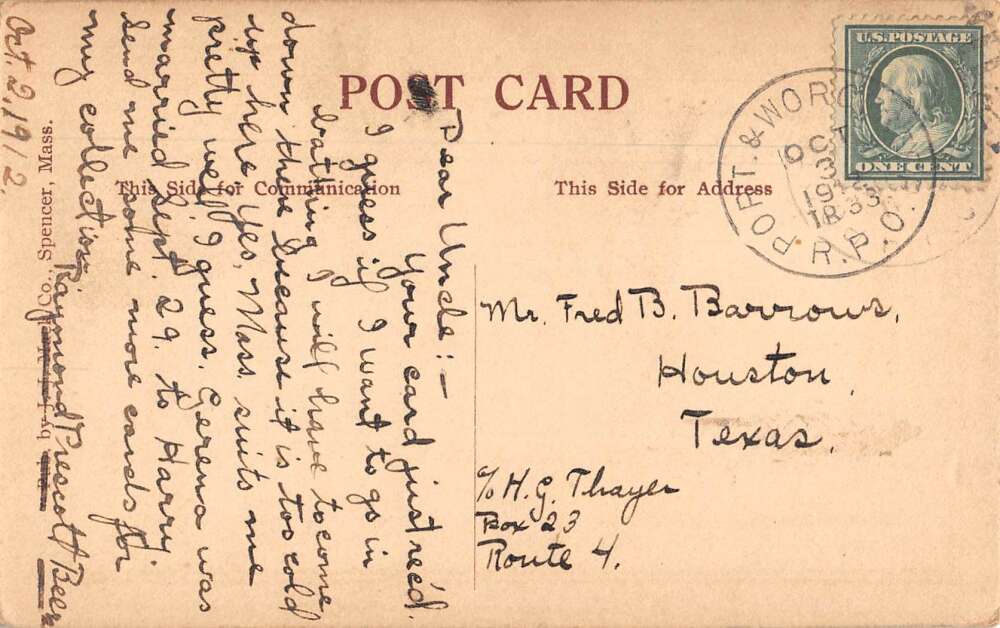 POST CARD
This Side for Communication
This Side for Address
U.S. POSTAGE
ONE CENT
PORT. & WORC.
OCT
3
1912
1833
R.P.O.
Dear Uncle:-
Your card just rec'd.
I guess if I want to go in
bathing I will have to come
down there because it is too cold
up here. Yes, Mass. suits me
pretty well I guess. Gerena was
married Sept. 29. to Harry
Send me some more cards for
my collection
Raymond Prescott
Oct. 2, 1912.
Co., Spencer, Mass.
Mr. Fred B. Barrows,
Houston,
Texas.
c/o H. G. Thayer
Box 23
Route 4.